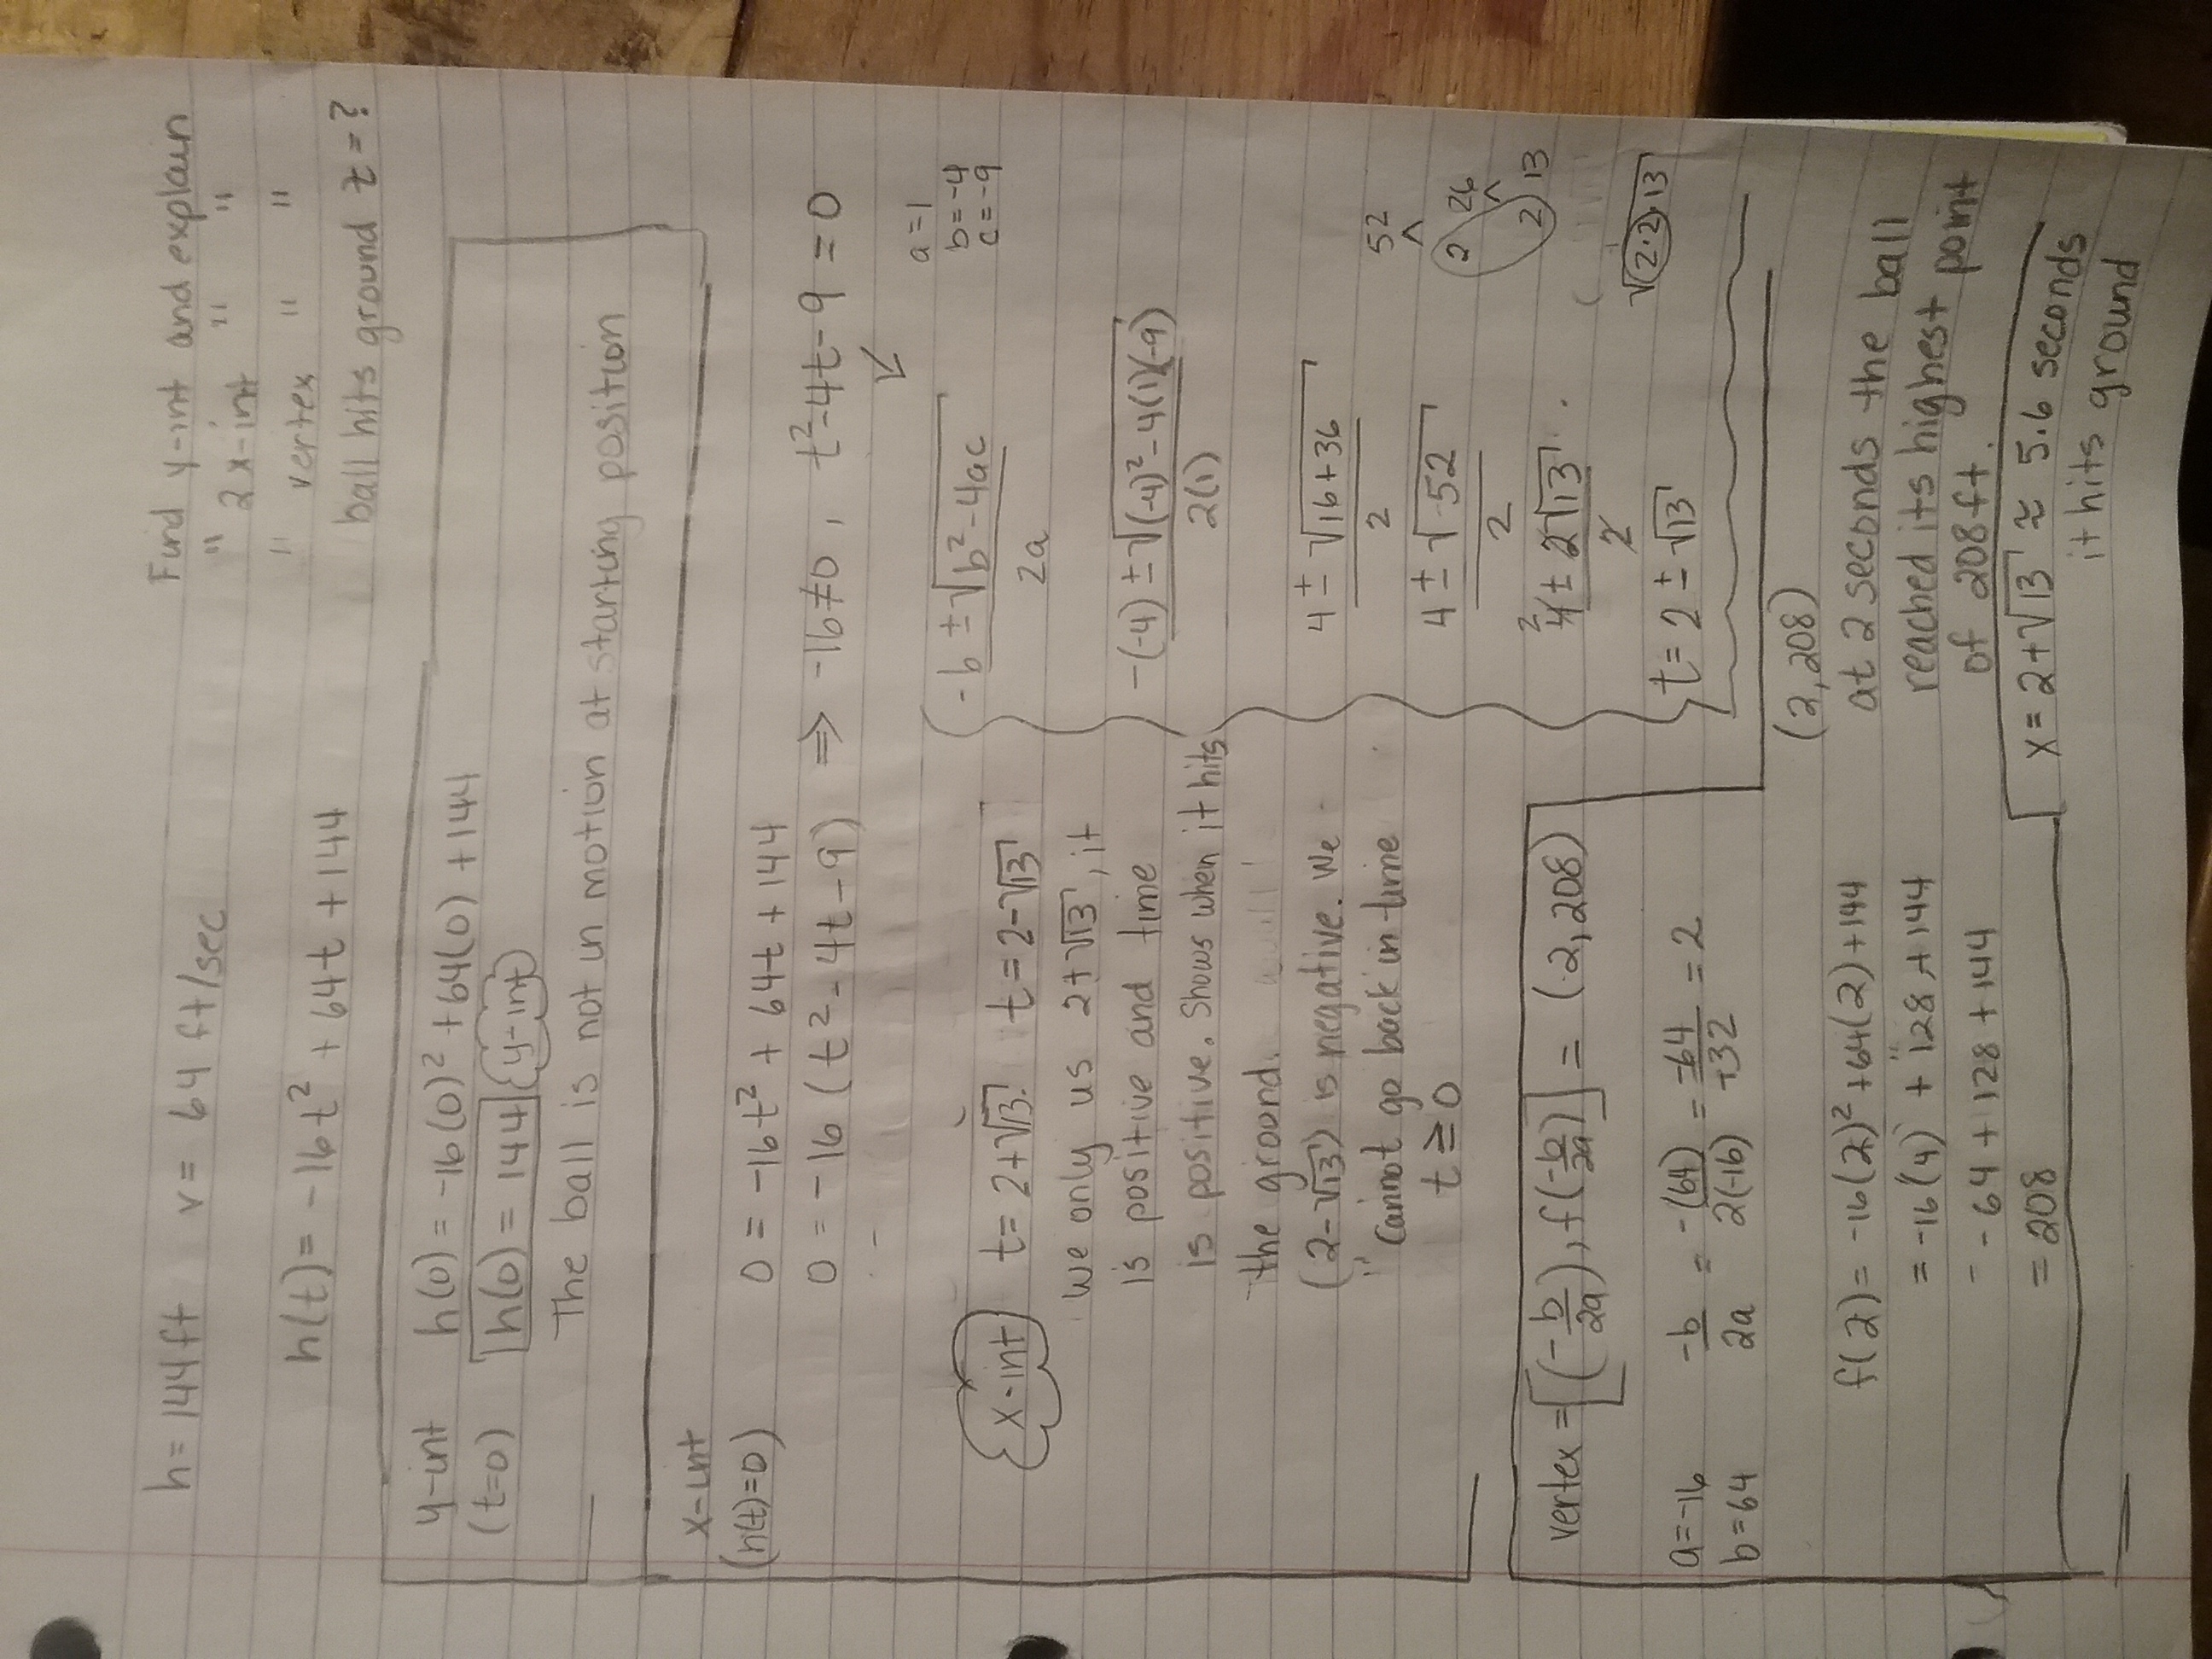 h = 144ft   v = 64 ft/sec   Find y-int and explain
" 2 x-int " "
" vertex " "
h(t) = -16t² + 64t + 144   ball hits ground t = ?
y-int   h(0) = -16(0)² + 64(0) + 144
(t=0)   h(0) = 144 y-int
The ball is not in motion at starting position
x-int   0 = -16t² + 64t + 144
(h(t)=0)   0 = -16(t² - 4t - 9) ⇒ -16≠0, t² - 4t - 9 = 0
a = 1
b = -4
c = -9
-b ± √b² - 4ac
2a
-(-4) ± √(-4)² - 4(1)(-9)
2(1)
4 ± √16 + 36
2
4 ± √52
2
2
4 ± 2√13
2
t = 2 ± √13
52
2 26
2 13
√2·2·13
x-int   t = 2+√13   t = 2-√13
we only us 2+√13, it
is positive and time
is positive. Shows when it hits
the ground.
(2-√13) is negative. We
"cannot go back in time
t ≥ 0
vertex = [(-b/2a), f(-b/2a)] = (2, 208)
a = -16
b = 64
-b/2a = -(64)/2(-16) = -64/-32 = 2
f(2) = -16(2)² + 64(2) + 144
= -16(4) + 128 + 144
- 64 + 128 + 144
= 208
(2, 208)
at 2 seconds the ball
reached its highest point
of 208 ft.
x = 2+√13 ≈ 5.6 seconds
it hits ground